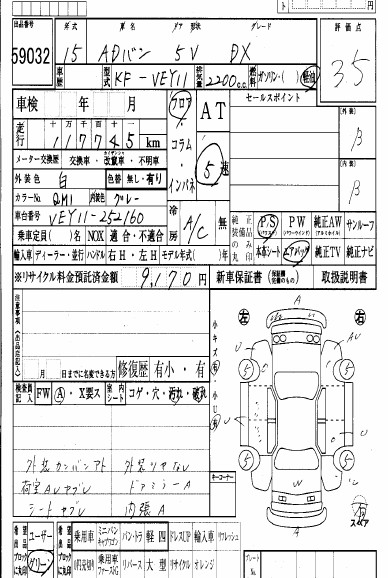 出品番号 年式 車名 ドア 形状 グレード 評価点
59032 15 ADバン 5V DX 3.5
車歴 型式 KF-VEY11 排気量 2200 c.c. 燃料 ガソリン・( ) 軽油
車検 年 月 フロア AT セールスポイント
走行 十万 万 千 百 十 一
117745 km コラム 5速 外装 B
メーター交換歴 交換車・改竄車・不明車 インパネ 内装 B
外装色 白 色替 無し・有り
カラーNo. QM1 内装色 グレー
車台番号 VEY11-252160 冷房 A/C 無 純正装備品のみ丸印 PS PW 純正AW サンルーフ
乗車定員( )名 NOX 適合・不適合 本革シート エアバック 純正TV 純正ナビ
輸入車 ディーラー・並行 ハンドル 右H・左H モデル年式( )年
※リサイクル料金預託済金額 9,170円 新車保証書 取扱説明書
注意事項(出品店記入) 小キズ 有・小U 有 左 右
日までに名変できる方 修復歴 有小・有
検査員記入 FW A・X要ス 室内シート コゲ・穴・汚れ・破れ
外装カンバンアト
荷室AUヤブレ ドアミラーA キーコーナー
シートヤブレ 内張A
スペア
希望ブロックに丸印 ユーザー 乗用車 ミニバン 軽四 ドレスUP 輸入車 リフレッシュ
グリーン リバース 大型 リサイクル オレンジ